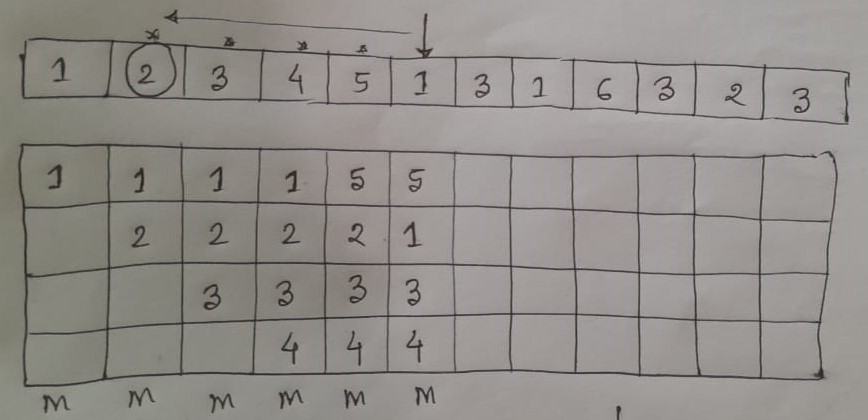 1 2 3 4 5 1 3 1 6 3 2 3
1 1 1 1 5 5
2 2 2 2 1
3 3 3 3
4 4 4
m m m m m m